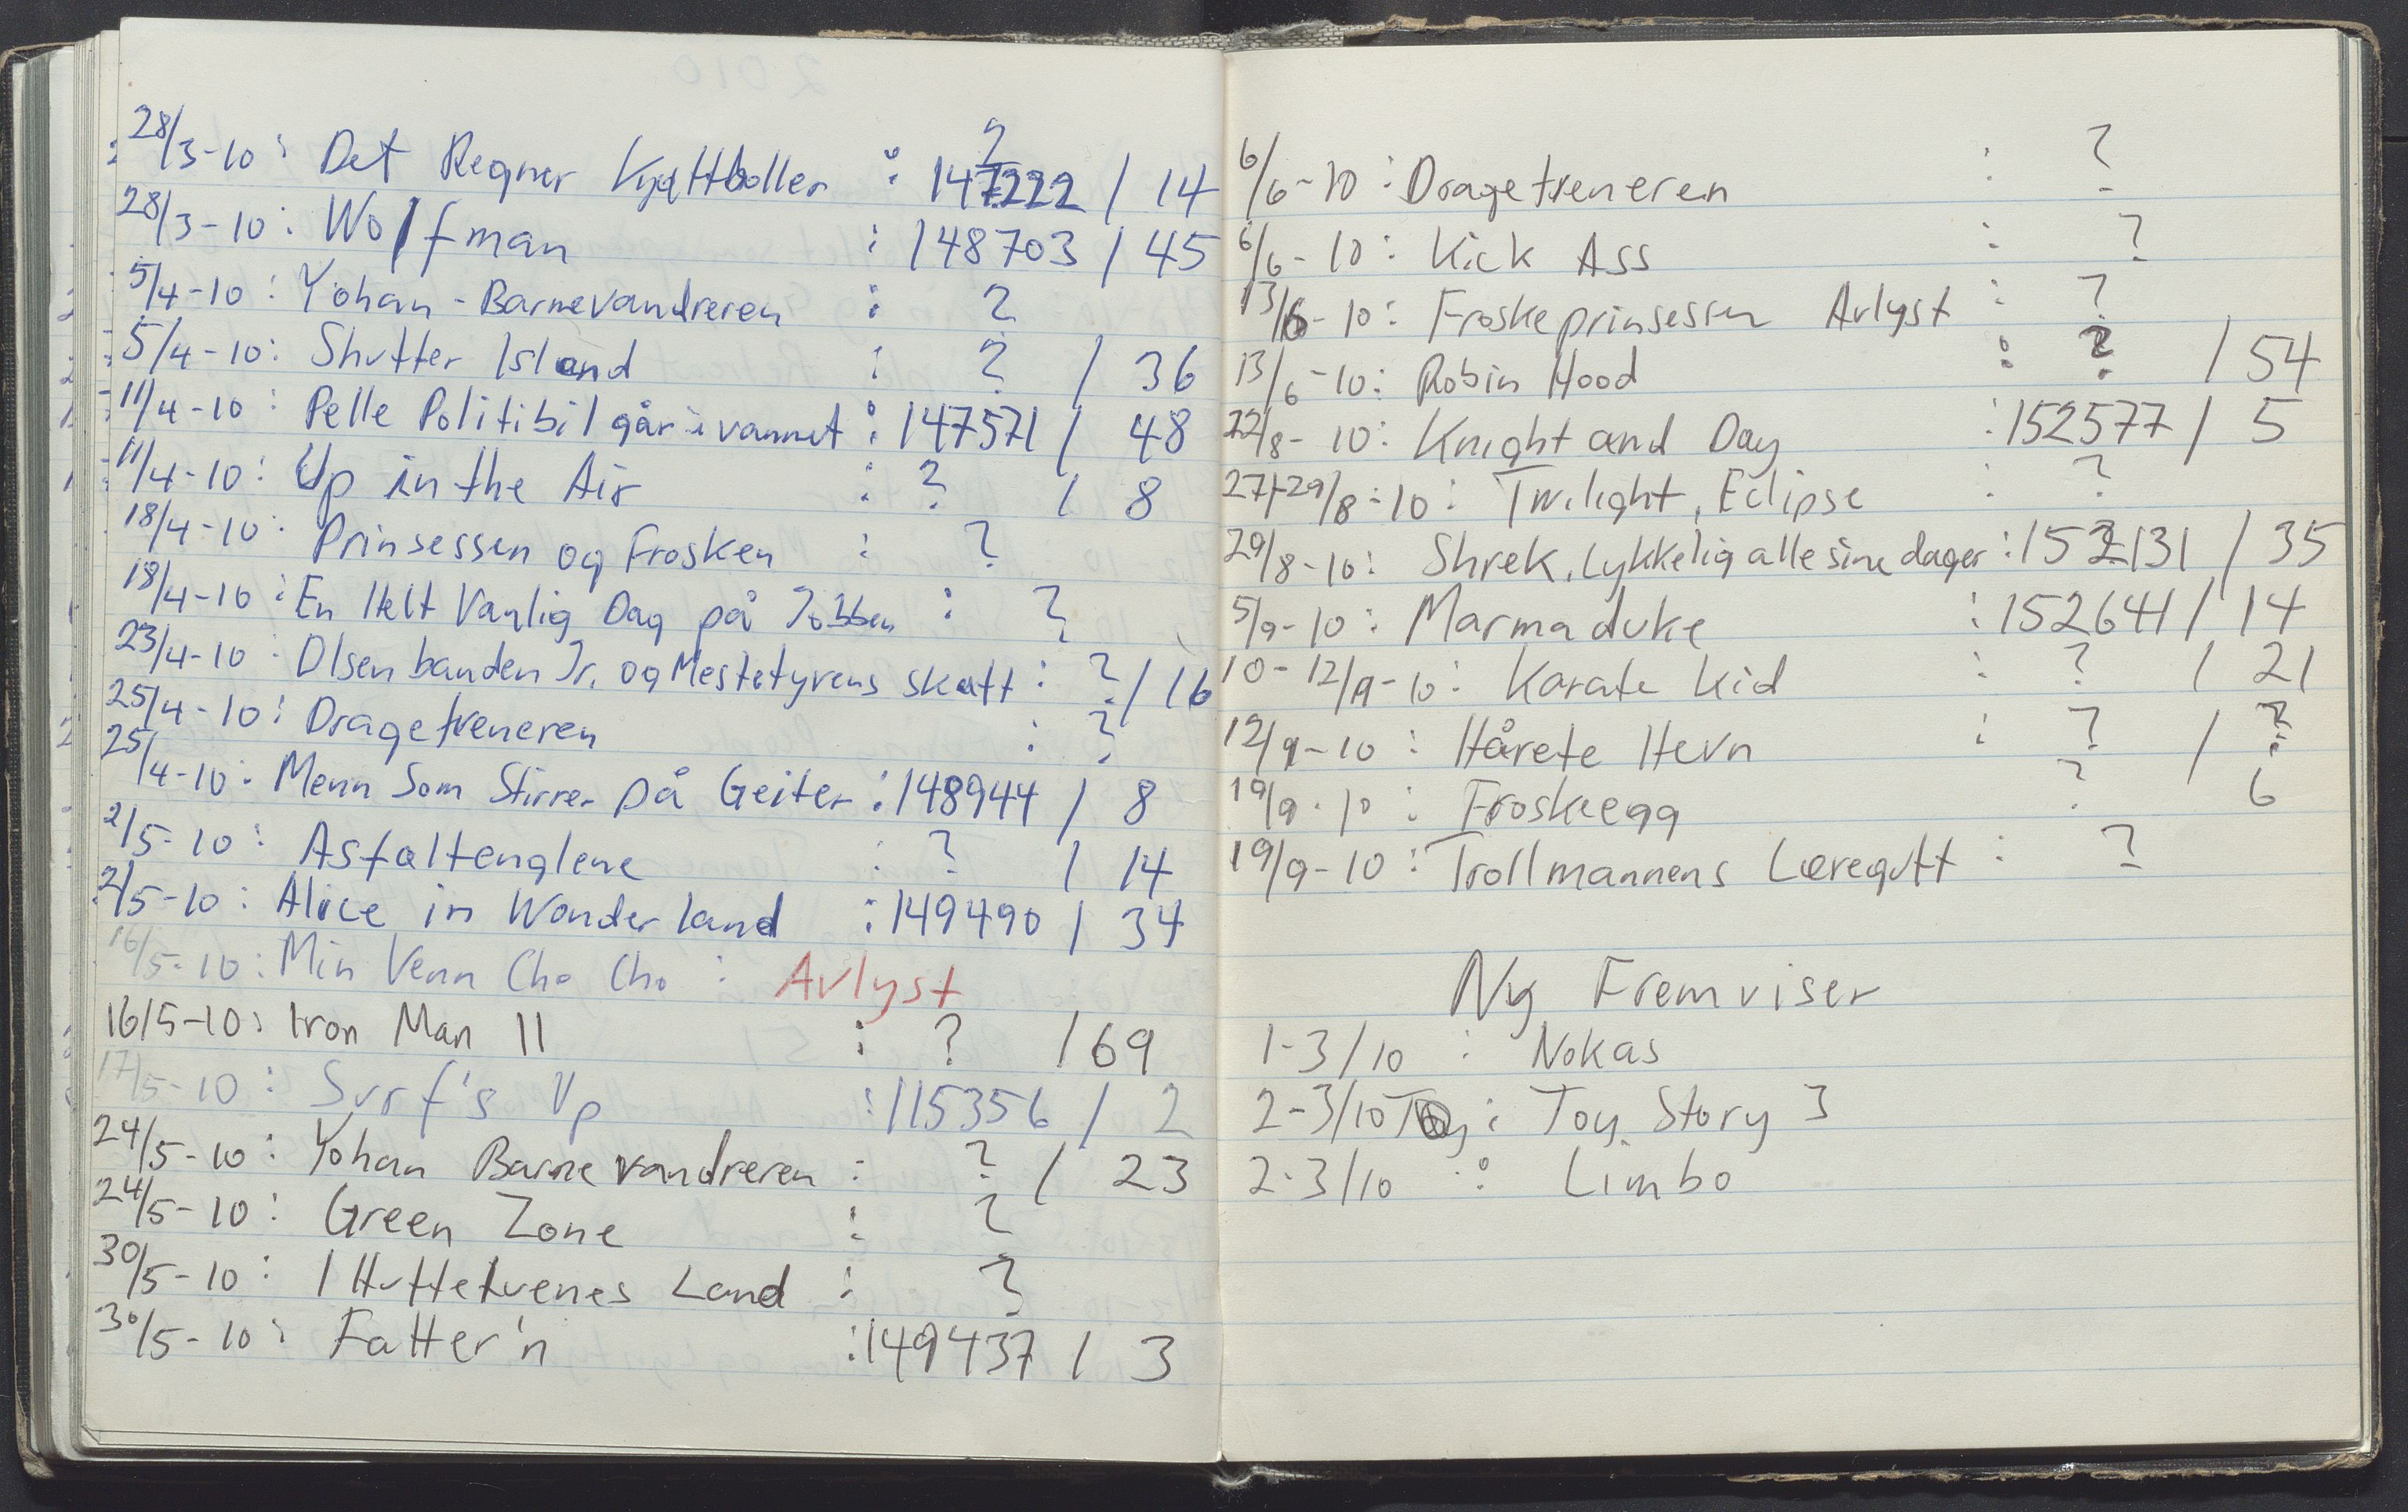 28/3-10: Det Regner Kjøttboller : 147222 / 14
28/3-10: Wolfman : 148703 / 45
5/4-10: Yohan - Barnevandreren : ?
5/4-10: Shutter Island : ? / 36
11/4-10: Pelle Politibil går i vannet : 147571 / 48
11/4-10: Up in the Air : ? / 8
18/4-10: Prinsessen og Frosken : ?
18/4-10: En Helt Vanlig Dag på Jobben : ?
23/4-10: Olsen banden Jr. og Mestetyvens skatt : ? / 16
25/4-10: Dragetreneren : ?
25/4-10: Menn Som Stirrer på Geiter : 148944 / 8
2/5-10: Asfaltenglene : ? / 14
2/5-10: Alice in Wonderland : 149490 / 34
16/5-10: Min Venn Cho Cho : Avlyst
16/5-10: Iron Man II : ? / 69
17/5-10: Surf's Up : 115356 / 2
24/5-10: Yohan Barnevandreren : ? / 23
24/5-10: Green Zone : ?
30/5-10: I Huttetuenes Land : ?
30/5-10: Fatter'n : 149437 / 3
6/6-10: Dragetreneren : ?
6/6-10: Kick Ass : ?
13/6-10: Froskeprinsessen Avlyst : ?
13/6-10: Robin Hood : ? / 54
22/8-10: Knight and Day : 152577 / 5
27+29/8-10: Twilight, Eclipse : ?
29/8-10: Shrek, Lykkelig alle sine dager : 152131 / 35
5/9-10: Marmaduke : 152641 / 14
10-12/9-10: Karate Kid : ? / 21
12/9-10: Hårete Hevn : ? / ?
19/9-10: Froskeegg ? 6
19/9-10: Trollmannens Læregutt : ?
Ny Fremviser
1-3/10 : Nokas
2-3/10 Toy : Toy Story 3
2-3/10 : Limbo